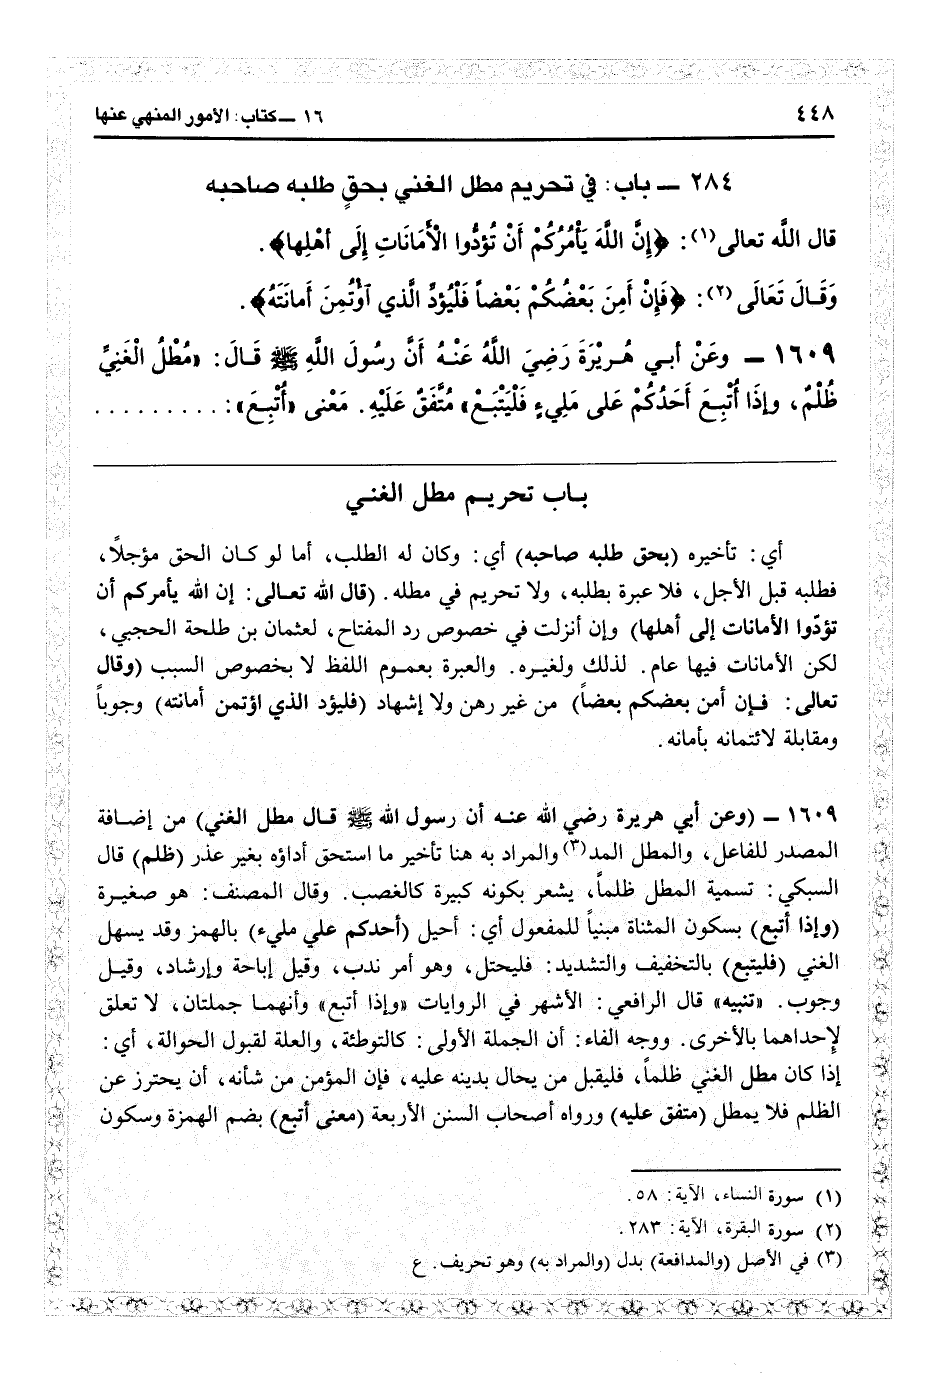 ٤٤٨ ١٦ ــ كتاب: الأمور المنهي عنها
٢٨٤ ــ باب: في تحريم مطل الغني بحقٍ طلبه صاحبه
قال اللَّه تعالى(١): ﴿إِنَّ اللَّهَ يَأْمُرُكُمْ أَنْ تُؤدُّوا الْأَمَانَاتِ إِلَى أهْلِها﴾.
وَقَـالَ تَعَالَى(٢): ﴿فَإِنْ أَمِنَ بَعْضُكُمْ بَعْضاً فَلْيُؤدِّ الَّذي اَؤْتُمِنَ أَمانَتَهُ﴾.
١٦٠٩ ــ وعَنْ أبـي هُـرَيْرَةَ رَضِيَ اللَّهُ عَنْـهُ أَنَّ رسُولَ اللَّهِ ﷺ قَـالَ: «مُطْلُ الْغَنِيِّ
ظُلْمٌ، وإِذَا أُتْبِعَ أَحَدُكُمْ عَلى مَلِيءٍ فَلْيَتْبَعْ» مُتَّفَقٌ عَلَيْهِ. مَعْنى «أُتْبِعَ»: . . . . . . . . .
بـاب تحريـم مطل الغنـي
أي: تأخيره (بحق طلبه صاحبه) أي: وكان له الطلب، أما لو كـان الحق مؤجلاً،
فطلبه قبل الأجل، فلا عبرة بطلبه، ولا تحريم في مطله. (قال الله تعـالى: إن الله يأمركم أن
تؤدّوا الأمانات إلى أهلها) وإن أنزلت في خصوص رد المفتاح، لعثمان بن طلحة الحجبي،
لكن الأمانات فيها عام. لذلك ولغيره. والعبرة بعموم اللفظ لا بخصوص السبب (وقال
تعالى: فـإن أمن بعضكم بعضاً) من غير رهن ولا إشهاد (فليؤد الذي اؤتمن أمانته) وجوباً
ومقابلة لائتمانه بأمانه.
١٦٠٩ ــ (وعن أبي هريرة رضي الله عنـه أن رسول الله ﷺ قـال مطل الغني) من إضـافة
المصدر للفاعل، والمطل المد(٣) والمراد به هنا تأخير ما استحق أداؤه بغير عذر (ظلم) قال
السبكي: تسمية المطل ظلماً، يشعر بكونه كبيرة كالغصب. وقال المصنف: هو صغيـرة
(وإذا أتبع) بسكون المثناة مبنياً للمفعول أي: أحيل (أحدكم علي مليء) بالهمز وقد يسهل
الغني (فليتبع) بالتخفيف والتشديد: فليحتل، وهو أمر ندب، وقيل إباحة وإرشاد، وقيـل
وجوب. «تنبيه» قال الرافعي: الأشهر في الروايات «وإذا أتبع» وأنهمـا جملتان، لا تعلق
لإحداهما بالأخرى. ووجه الفاء: أن الجملة الأولى: كالتوطئة، والعلة لقبول الحوالة، أي:
إذا كان مطل الغني ظلماً، فليقبل من يحال بدينه عليه، فإن المؤمن من شأنه، أن يحترز عن
الظلم فلا يمطل (متفق عليه) ورواه أصحاب السنن الأربعة (معنى أتبع) بضم الهمزة وسكون
(١) سورة النساء، الآية: ٥٨.
(٢) سورة البقرة، الآية: ٢٨٣.
(٣) في الأصل (والمدافعة) بدل (والمراد به) وهو تحريف. ع